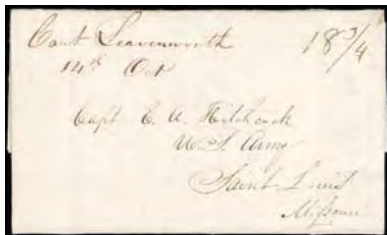 Cant Leavenworth 18 3/4
14th Oct
Capt E. A. Hitchcock
U. S. Army
Saint Louis
Missouri